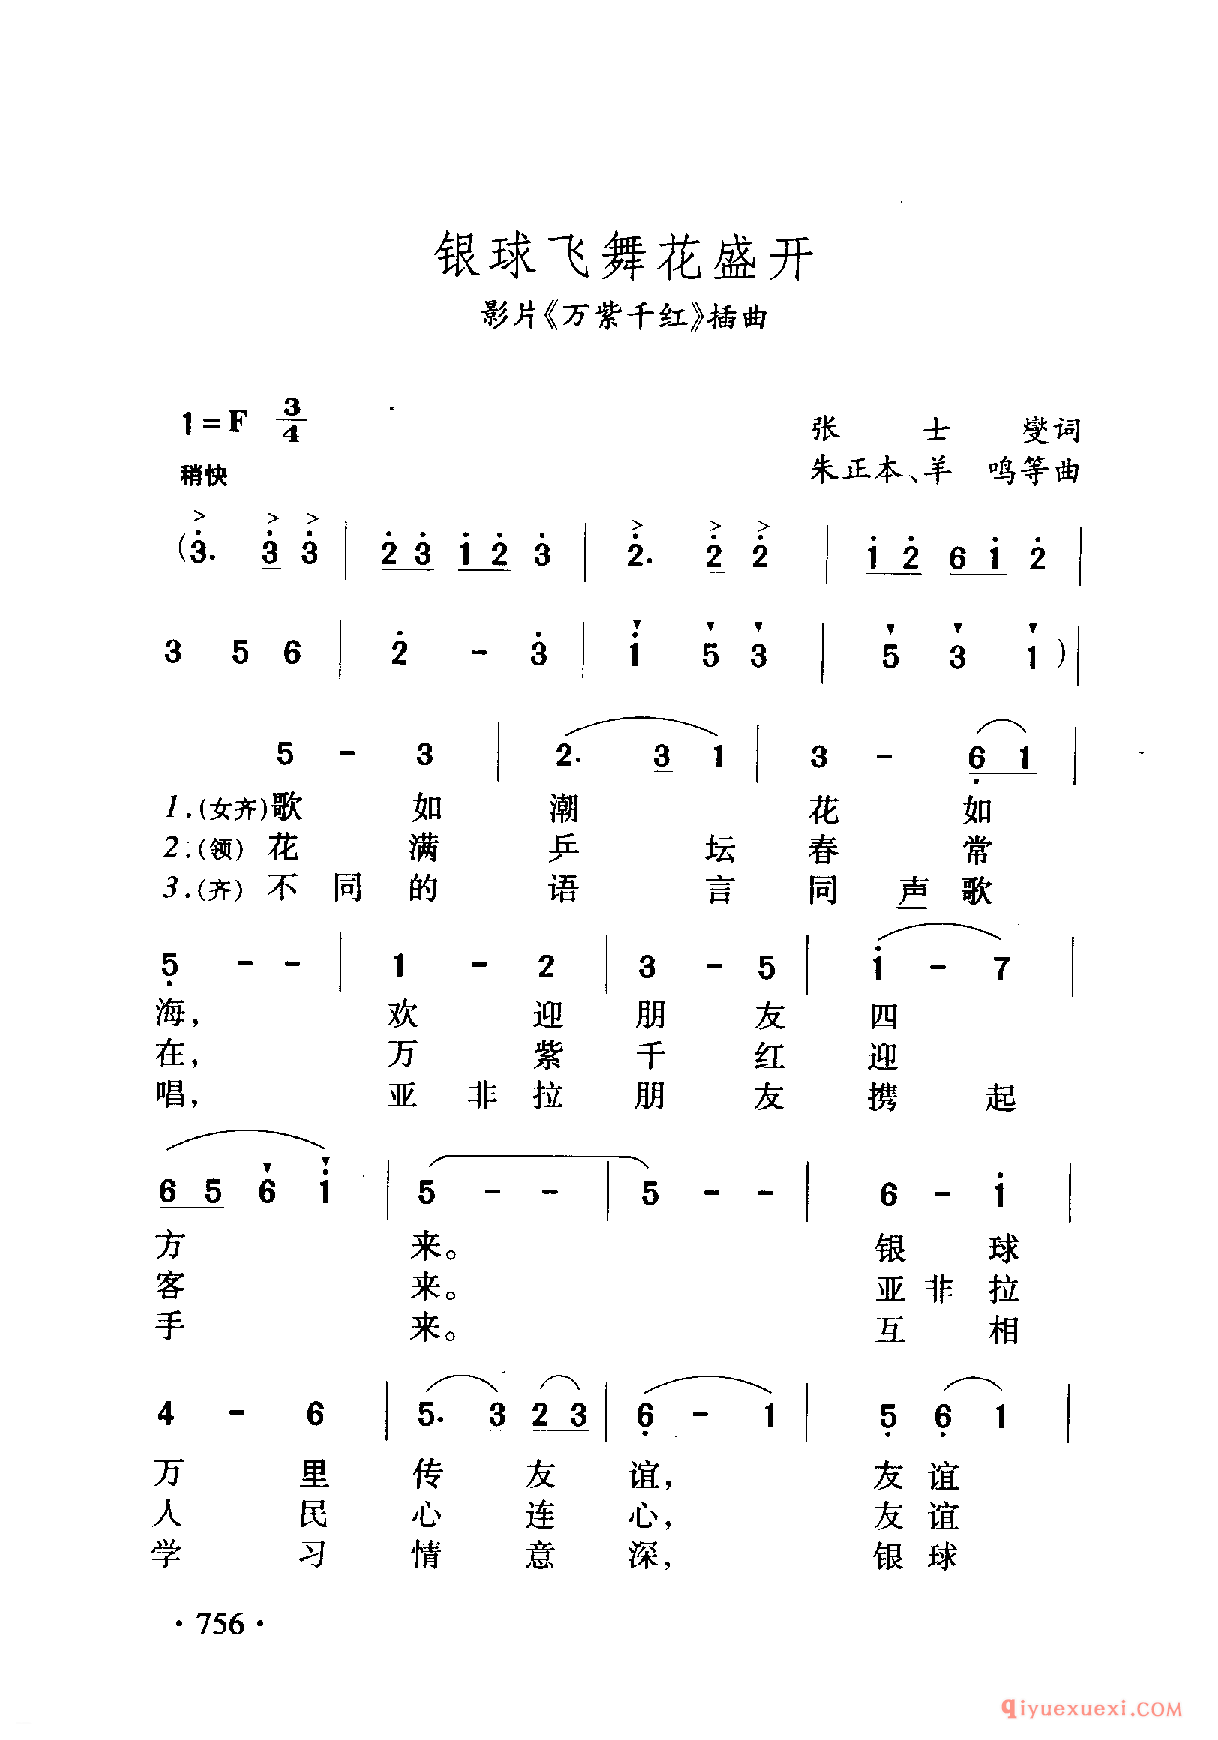 银球飞舞花盛开
影片《万紫千红》插曲
1=F 3/4
张士燮词
稍快
朱正本、羊鸣等曲
(3. 3 3 | 2 3 1 2 3 | 2. 2 2 | 1 2 6 1 2 |
3 5 6 | 2 - 3 | 1 5 3 | 5 3 1 ) |
5 - 3 | 2. 3 1 | 3 - 6 1 |
1.(女齐)歌 如 潮 花 如
2.(领) 花 满 乒 坛 春 常
3.(齐) 不 同 的 语 言 同 声 歌
5 - - | 1 - 2 | 3 - 5 | 1 - 7 |
海, 欢 迎 朋 友 四
在, 万 紫 千 红 迎
唱, 亚 非 拉 朋 友 携 起
6 5 6 1 | 5 - - | 5 - - | 6 - 1 |
方 来。 银 球
客 来。 亚 非 拉
手 来。 互 相
4 - 6 | 5. 3 2 3 | 6 - 1 | 5 6 1 |
万 里 传 友 谊, 友 谊
人 民 心 连 心, 友 谊
学 习 情 意 深, 银 球
· 756 ·
qiyuexuexi.COM